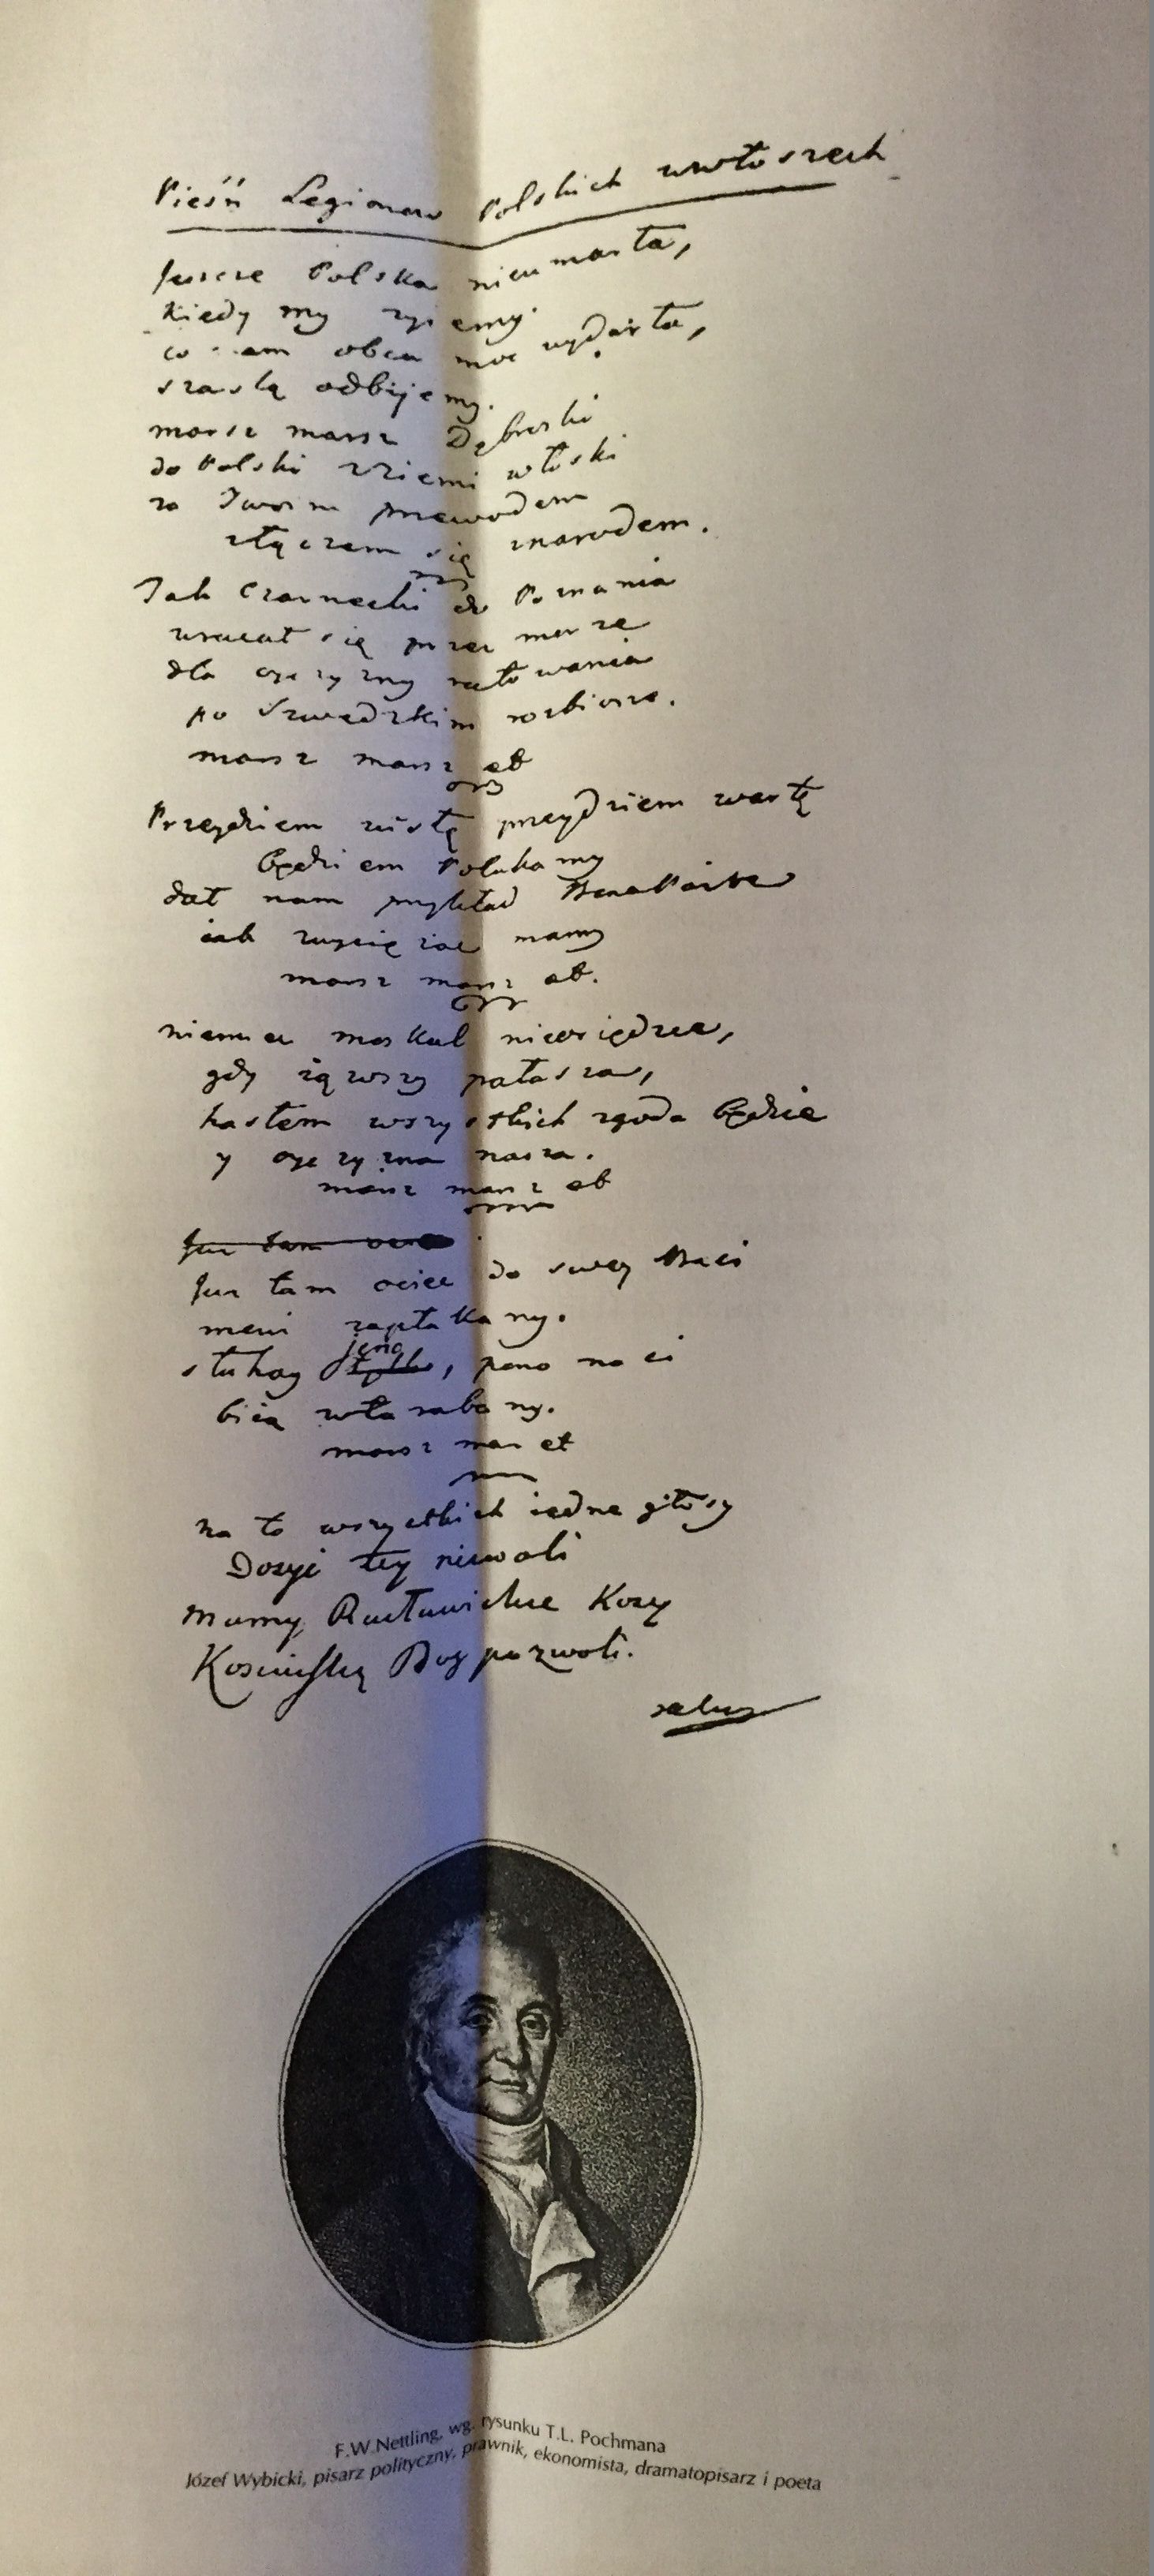 Pieśń Legionow Polskich wewłoszech
Jescze Polska nieumarła,
kiedy my żyiemy.
co nam obca moc wydarła,
szablą odbijemy.
marsz marsz Dąbroski
do Polski zZiemi włoski
za Twoim przewodem
złączem się znarodem.
Jak Czarnecki do Poznania
wracał się przez morze
dla oyczyzny ratowania
po Szwedzkim rozbiorze.
marsz marsz et
Przeydziem wisłę przeydziem wartę
będziem Polakamy
dał nam przykład BonaParte
iak zwyciężać mamy
marsz marsz et.
niemiec moskal nieosiędzie,
gdy iąwszy pałasza,
hasłem wszystkich zgoda będzie
y oyczyzna nasza.
marsz marsz et
Juz tam
Juz tam ociec do swey Basi
mowi zapłakany.
słuhay jeno tylko, pono nasi
biią wtarabany.
marsz mar et
na to wszystkich iedne głosy
Dosyć tey niewoli
mamy Racławickie Kosy
Kosciuszkę Bog pozwoli.
F.W.Nettling, wg. rysunku T.L. Pochmana
Józef Wybicki, pisarz polityczny, prawnik, ekonomista, dramatopisarz i poeta